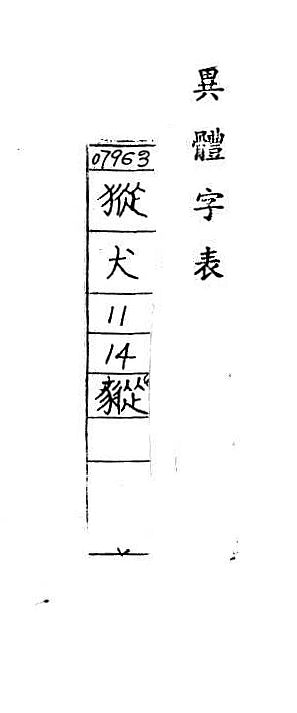 異體字表
07963
犬
11
14
豵